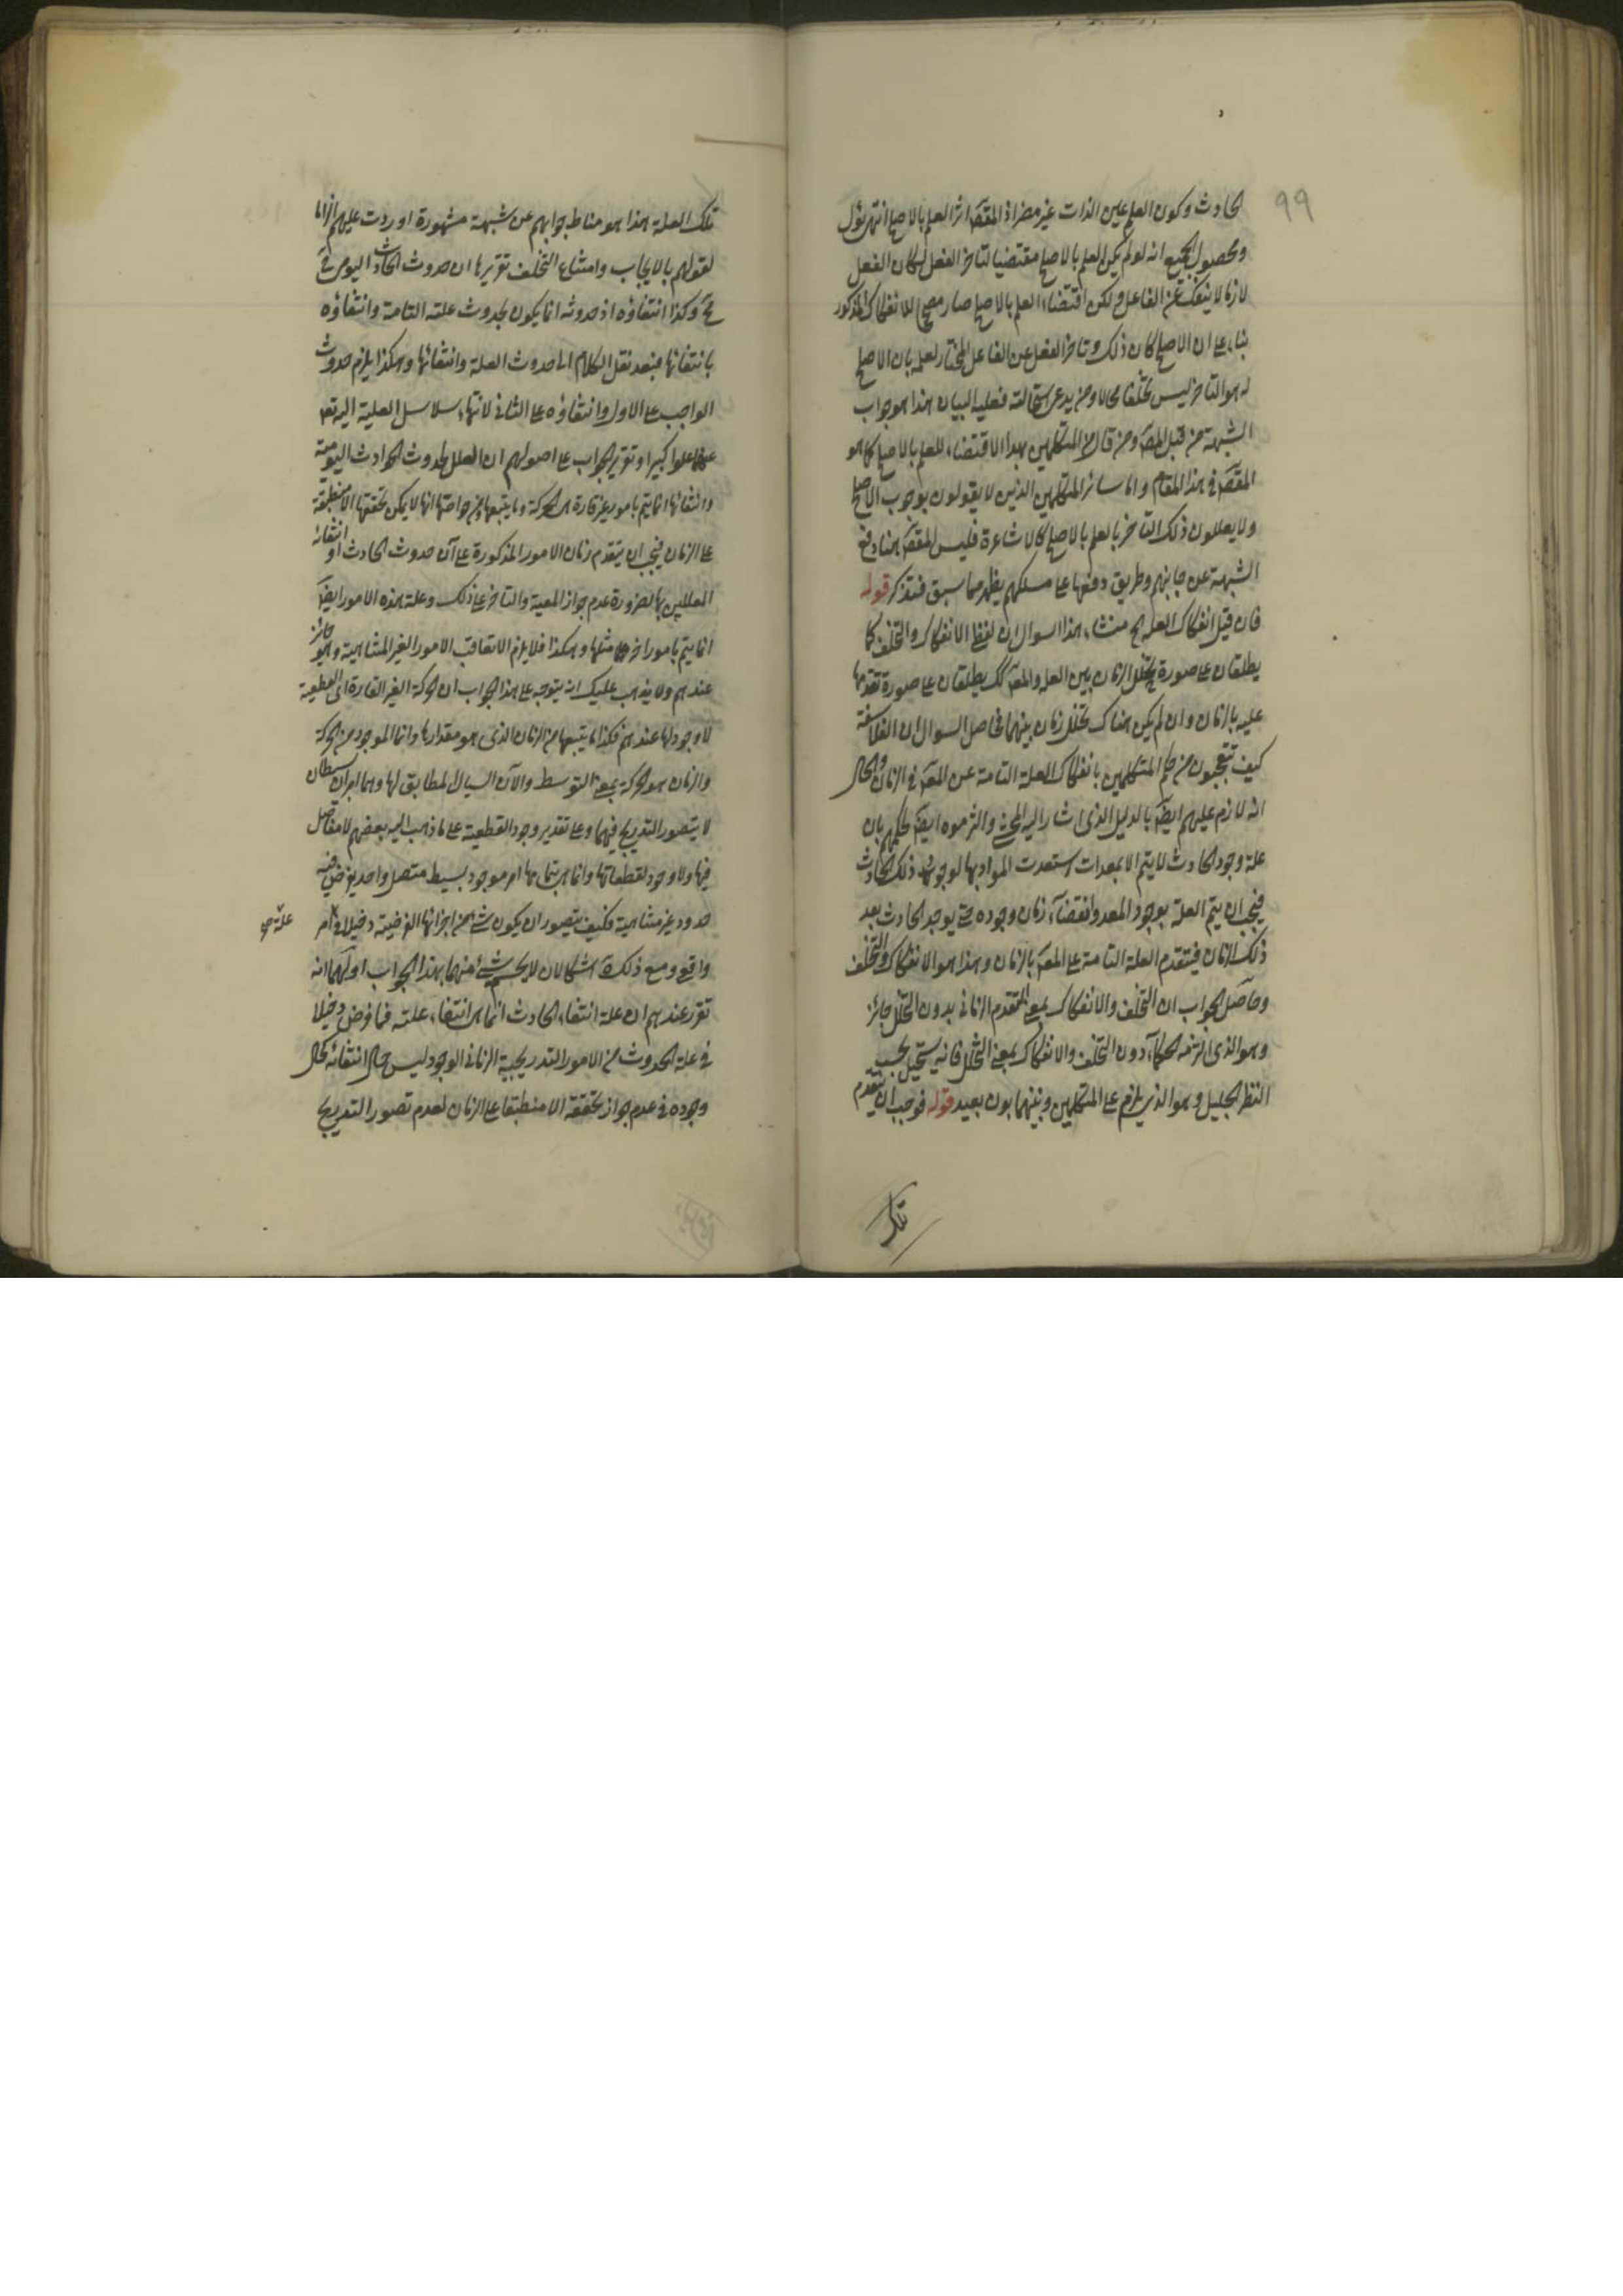 ٩٩
الحادث وكون العلم عين الذات غير مضر اذ المقصَ اثر العلم بالاصلح انتهى نؤل
ومحصول الجميع انه لو لم يكن العلم بالاصلح مقتضيا لتاخر الفعل لكان الفعل
لازما لا ينفك عن الفاعل ولكن اقتضاء العلم بالاصلح صار مصححا للانفكاك المذكور
بناء على ان الاصلح كان ذلك وتاخر الفعل عن الفاعل المختار لعلمه بان الاصلح
له هو التاخر ليس تخلفا محالا ومن يدعى استحالته فعليه البيان هذا هو جواب
الشبهة من قبل المصَ ومن قال من المتكلمين بهذا الاقتضاء للعلم بالاصلح كما هو
المقصَ في هذا المقام واما سائر المتكلمين الذين لا يقولون بوجوب الاصلح
ولا يعللون ذلك التاخر بالعلم بالاصلح كالاشاعرة فليس المقصَ هنا دفع
الشبهة عن جانبهم وطريق دفعها على مسلكهم يظهر مما سبق فتذكر قوله
فان قيل انفكاك العله اه منشاء هذا السوال ان لفظ الانفكاك والتخلف كما
يطلقان على صورة تخلل الزمان بين العله والمعَ كك يطلقان على صورة تقدمها
عليه بالزمان وان لم يكن هناك تخلل زمان بينهما فحاصل السوال ان الفلاسفة
كيف تتعجبون من حكم المتكلمين بانفكاك العلة التامة عن المعَ في الزمان والحال
انه لازم عليهم ايضَ بالدليل الذى اشار اليه المحشى والتزموه ايضَ لحكمهم بان
علة وجود الحادث لا يتم الا بمعدات استعدت المواد بها لوجود ذلك الحادث
فيجب ان يتم العلة بوجود المعد وانقضاء زمان وجوده حتى يوجد الحادث بعد
ذلك الزمان فيتقدم العلة التامة على المعَ بالزمان وهذا هو الانفكاك والتخلف
وحاصل الجواب ان التخلف والانفكاك بمعنى التقدم الزمانى بدون التخلل جائز
وهو الذى التزمه الحكماء دون التخلف والانفكاك بمعنى التخلل فانه يستحيل بحسب
النظر الجليل وهو الذى يلزم على المتكلمين وبينهما بون بعيد قوله فوجب ان يتقدم
تلك
تلك العلة هذا هو مناط جوابهم عن شبهة مشهورة اوردت عليهم الزاما
لقولهم بالايجاب وامتناع التخلف تقريرها ان حدوث الحادث اليومى فى
ح وكذا انتفاؤه اذ حدوثه انما يكون بحدوث علته التامة وانتفاؤه
بانتفائها فبعد نقل الكلام الى حدوث العلة وانتفائها وهكذا يلزم حدوث
الواجب على الاول وانتفاؤه على الثانى لانتهاء سلاسل العلية اليه تع
علوا كبيرا وتقرير الجواب على اصولهم ان العلل لحدوث الحوادث اليومية
وانتفائها انما يتم بامور غير قارة هى الحركة وما يتبعها من خواصها انها لا يمكن تحققها الا منطبقة
على الزمان فيجب ان يتقدم زمان الامور المذكورة على آن حدوث الحادث او انتفائه
المعللين بها لضرورة عدم جواز المعية والتاخر على ذلك وعلة هذه الامور ايضَ
انما يتم بامور اخر مثلها وهكذا فلا يلزم الا تعاقب الامور الغير المتناهية وهو جائز
عندهم ولا يذهب عليك انه يتوجه على هذا الجواب ان الحركة الغير القارة اى القطعية
لا وجود لها عندهم فكذا ما يتبعها من الزمان الذى هو مقدارها وانما الموجود من الحركة
والزمان هو الحركة بمعنى التوسط والآن السيال المطابق لها وهما امران بسيطان
لا يتصور التدريج فيهما وعلى تقدير وجود القطعية على ما ذهب اليه بعضهم لا مفاصل
فيها ولا وجود لقطعاتها وانما هى بتمامها امر موجود بسيط متصل واحد يفرض فيه
حدود غير متناهية فكيف يتصور ان يكون شئ من اجزائها الفرضية دخيلا فى امر
علة صح
واقع ومع ذلك اشكالان لا ينحسم شئ منهما بهذا الجواب اولهما انه
تقرر عندهم ان علة انتفاء الحادث انما هى انتفاء علته فما فرض دخيلا
فى علة الحدوث من الامور التدريجية الزمانى الوجود ليس حال انتفائه كحال
وجوده فى عدم جواز تحققه الا منطبقا على الزمان لعدم تصور التدريج